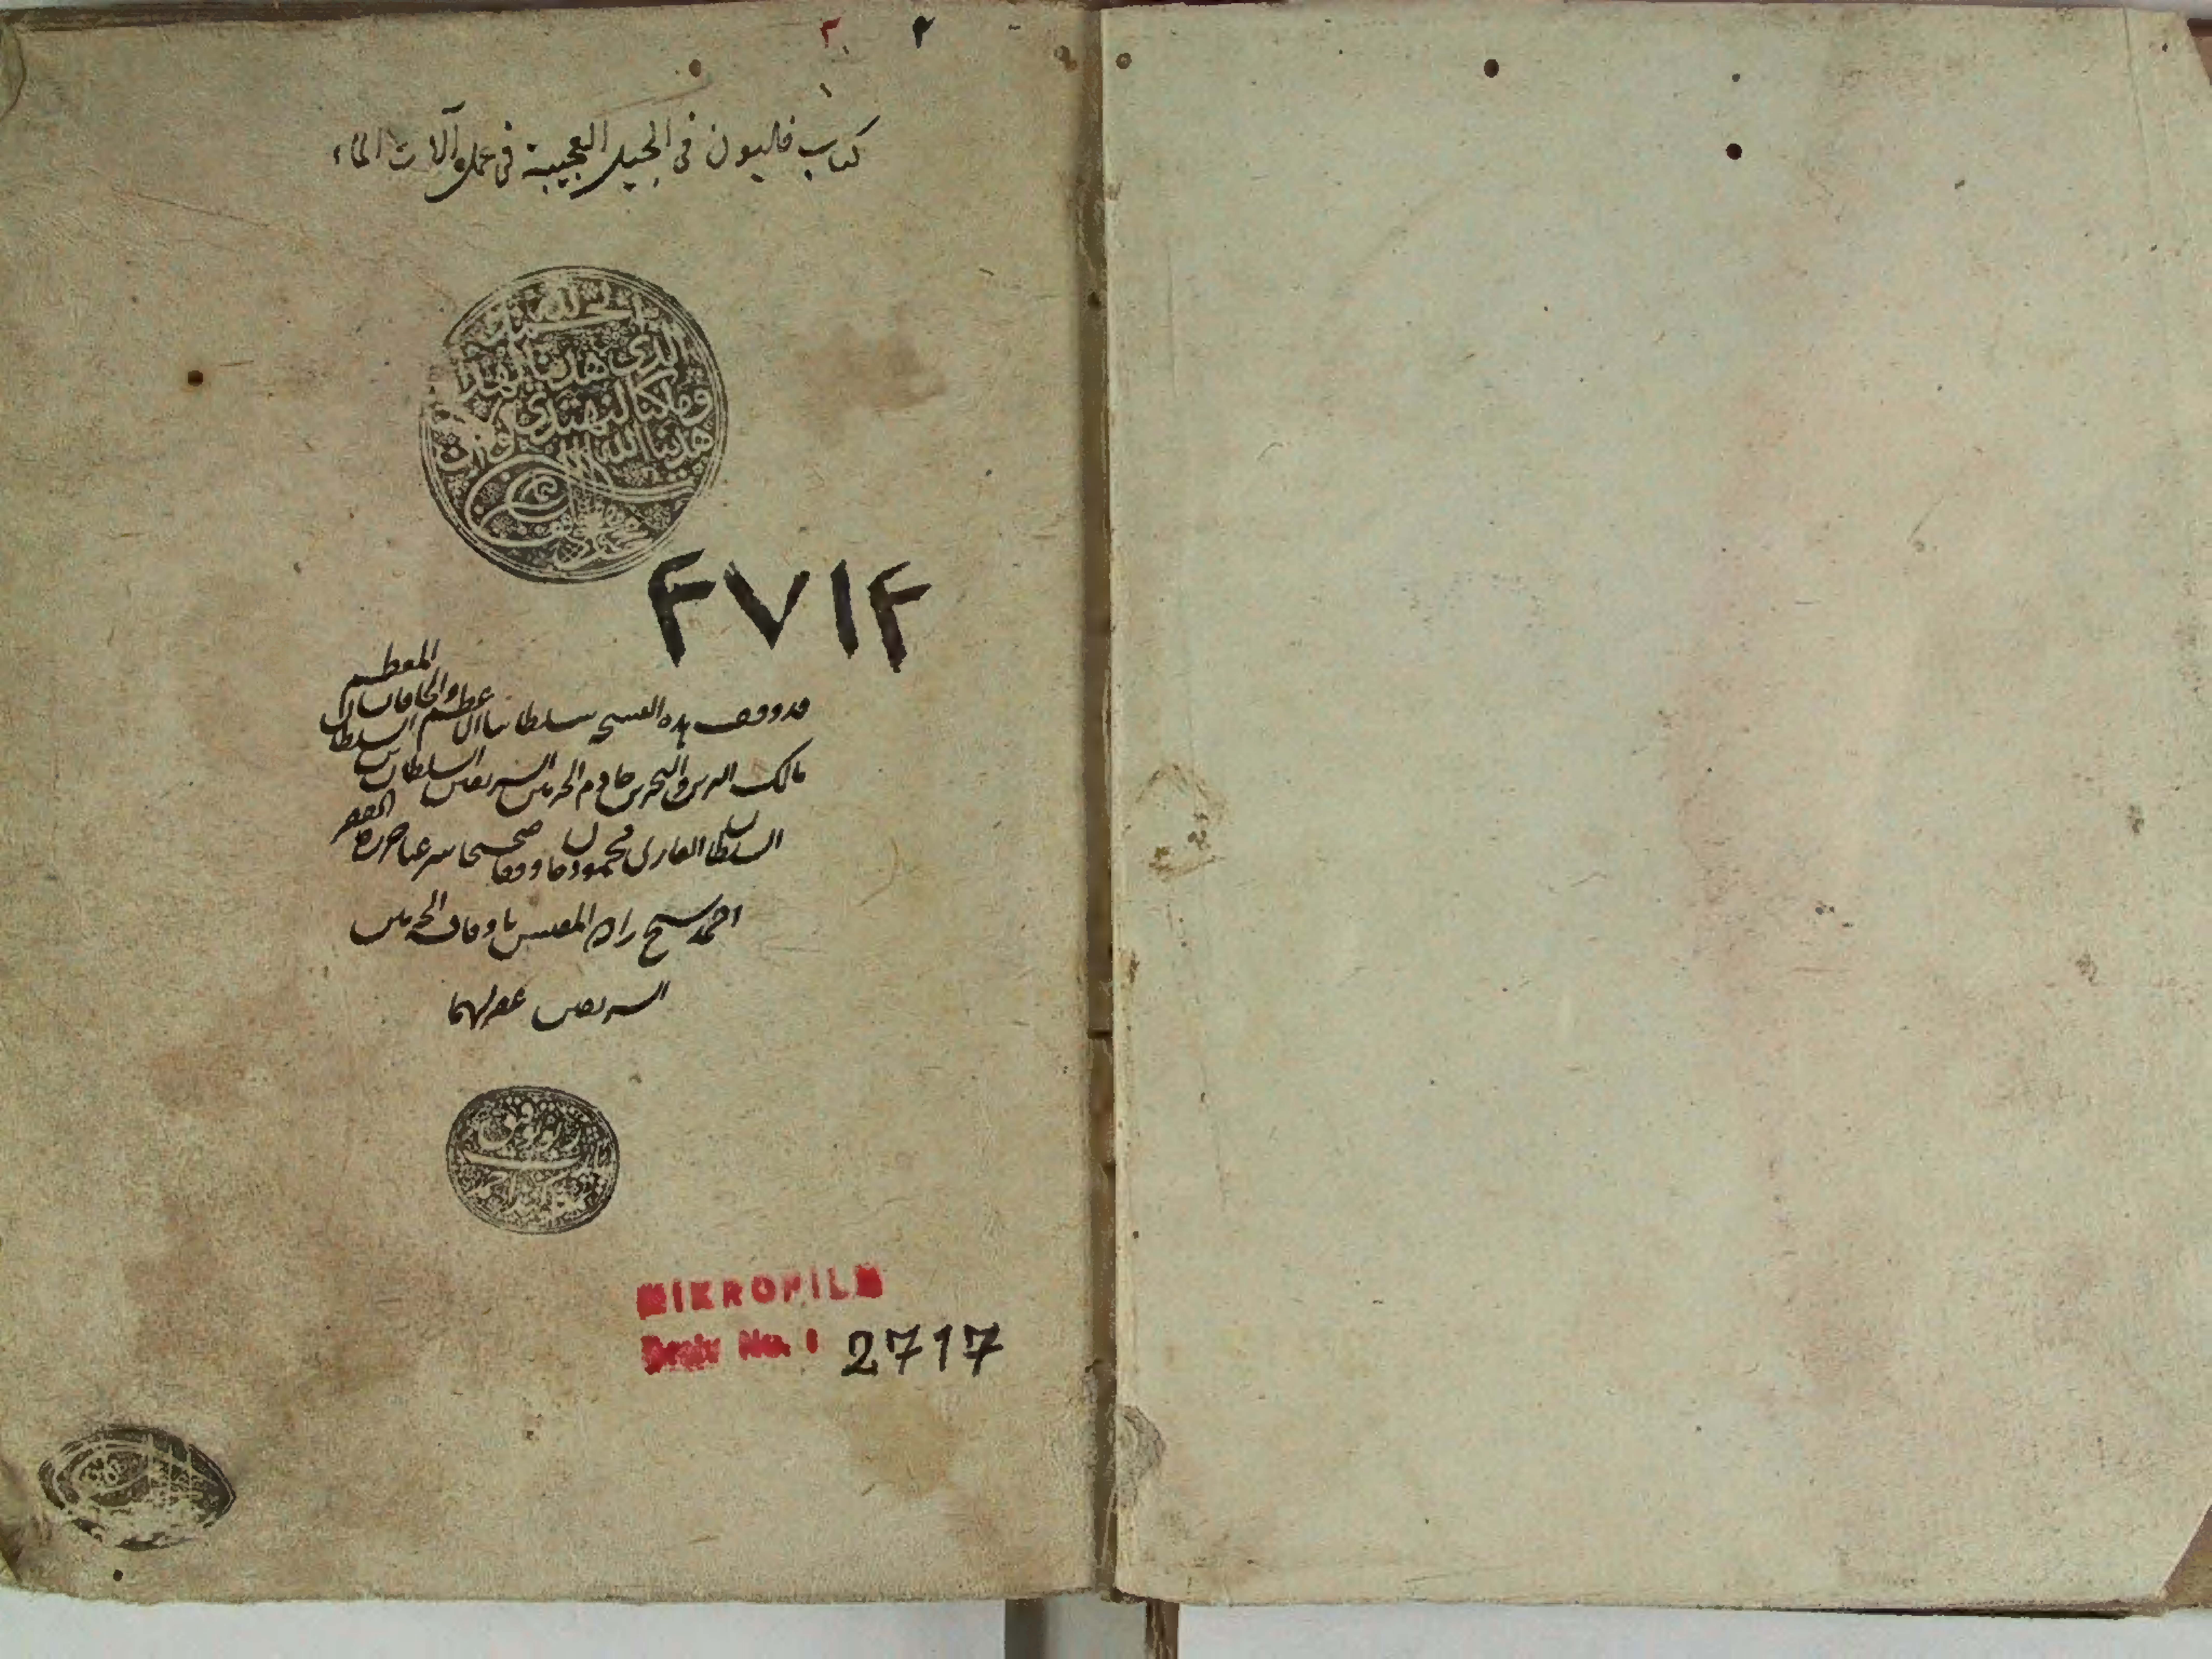 ٢ ٢
كتاب فليون في الحيل العجيبة في عمل آلات الماء
الحمد لله
الذي هدينا لهذا
وما كنا لنهتدي
لولا ان هدينا الله
٤٧١٤
قد وقف هذه النسخة سلطاننا الاعظم والخاقان المعظم
مالك البرين والبحرين خادم الحرمين الشريفين السلطان بن
السلطان السلطان الغازي محمود خان وقفا صحيحا شرعيا حرره الفقير
احمد شيخ زاده المفتش باوقاف الحرمين
الشريفين غفر لهما
MIKROFILM
Arşiv No. : 2717